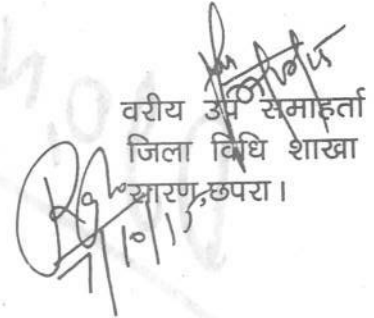 वरीय उप समाहर्ता
जिला विधि शाखा
सारण,छपरा।